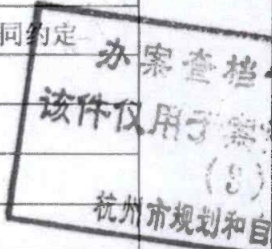 同约定
办案查档
该件仅用于案
(9)
杭州市规划和自